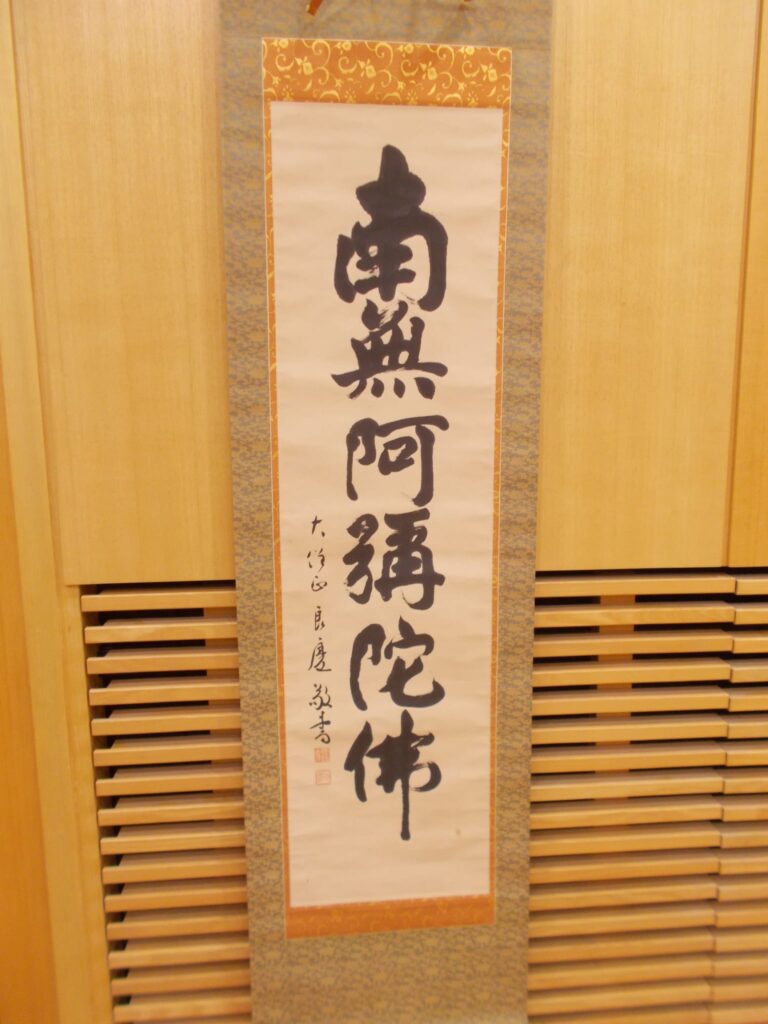 南無阿彌陀佛
大僧正良慶敬書